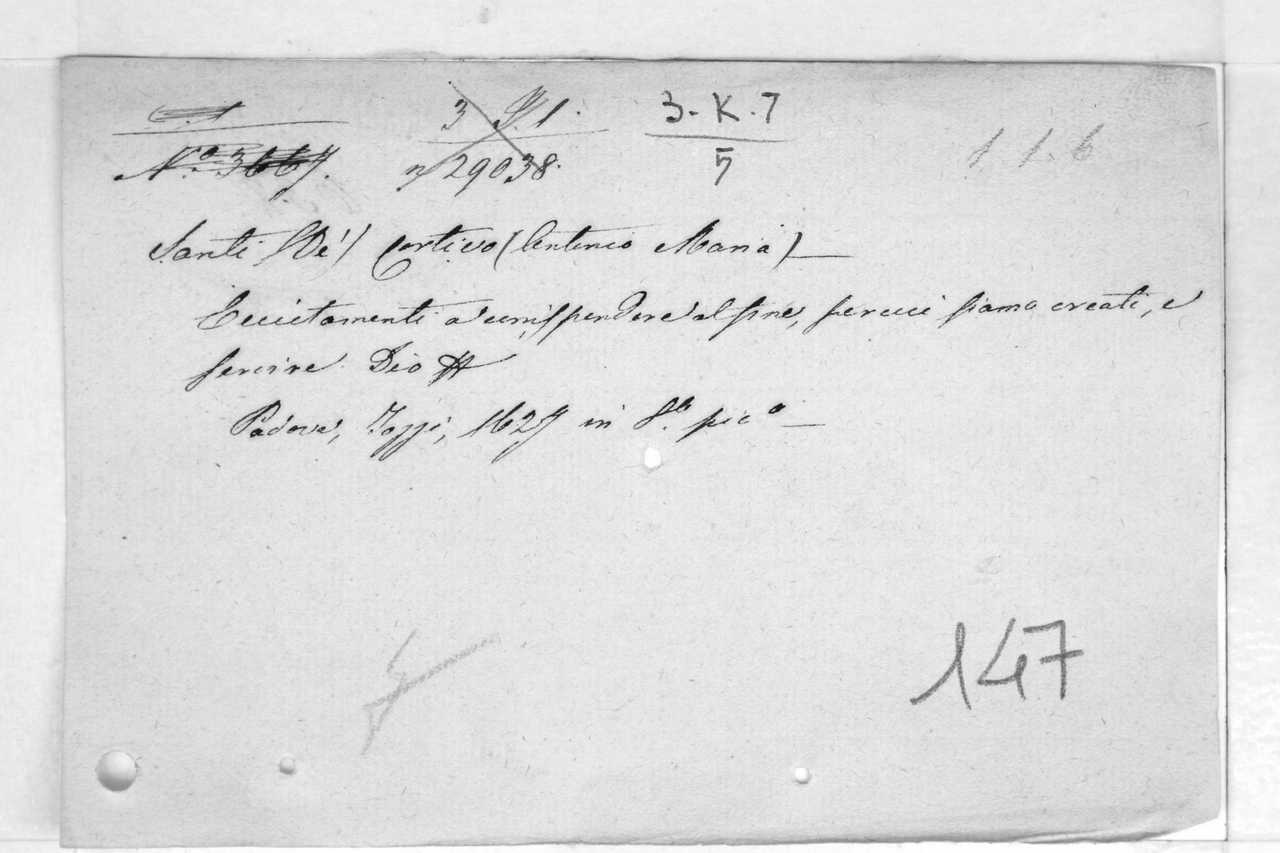 3 I. 1. 3-K.7 1 1. 6
N.° 3667. n 29038. 5
Santi (De') Cortivo (Antonio Maria)
Eccitamenti a corrispondere al fine, per cui siamo creati, e
servire Dio
Padova, 1627 in 8.° pic°
147